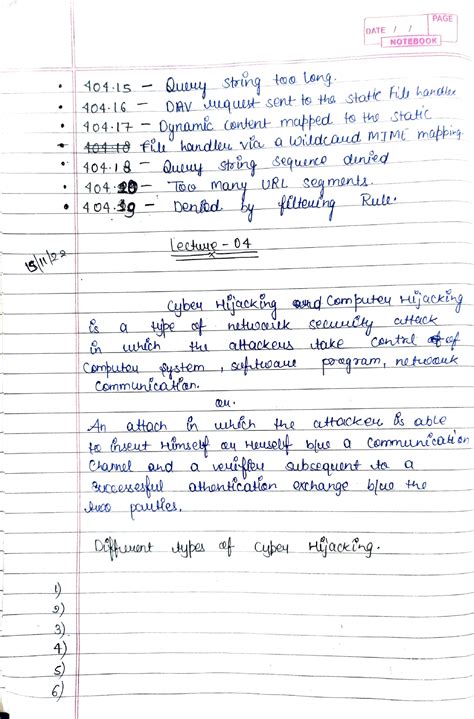 PAGE
DATE / /
NOTEBOOK
• 404.15 – Query string too long.
• 404.16 – DAV request sent to the static File handler
• 404.17 – Dynamic content mapped to the static
• File handler via a Wildcard MIME mapping.
• 404.18 – Query string sequence denied
• 404. – Too many URL segments.
• 404. – Denied by filtering Rule.
Lecture - 04
15/11/22
Cyber Hijacking and Computer Hijacking
is a type of network security attack
in which the attackers take control of
Computer system, software program, network
Communication.
or.
An attach in which the attacker is able
to insert Himself or Herself b/w a Communication
Channel and a verifier subsequent to a
successesful athontication exchange b/w the
two parties.
Different types of Cyber Hijacking.
1)
2)
3)
4)
5)
6)